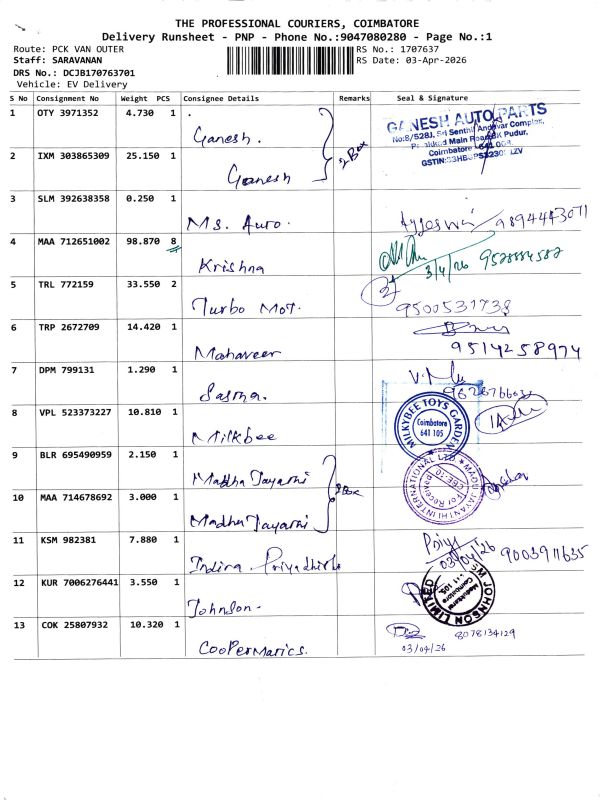 THE PROFESSIONAL COURIERS, COIMBATORE
Delivery Runsheet - PNP - Phone No.:9047080280 - Page No.:1
Route: PCK VAN OUTER RS No.: 1707637
Staff: SARAVANAN RS Date: 03-Apr-2026
DRS No.: DCJB170763701
Vehicle: EV Delivery
S No Consignment No Weight PCS Consignee Details Remarks Seal & Signature
1 OTY 3971352 4.730 1 .
Ganesh.
GANESH AUTO PARTS
No:8/528J, Sri Senthil Andavar Complex,
Palakkad Main Road, BK Pudur,
Coimbatore - 641 008.
2 IXM 303865309 25.150 1
Ganesh
2 Box
3 SLM 392638358 0.250 1
Ms. Auro. 9894443071
4 MAA 712651002 98.870 8
Krishna 3/4/26
5 TRL 772159 33.550 2
Turbo Mot. 9500531738
6 TRP 2672709 14.420 1
Mahaveer 9514258974
7 DPM 799131 1.290 1
8 VPL 523373227 10.810 1
Milkbee
MILKYBEE TOYS GARDEN
Coimbatore
641 105
9 BLR 695490959 2.150 1
Madha Jayanthi
MADHU JAYANTHI INTERNATIONAL LTD
10 MAA 714678692 3.000 1
Madha Jayanthi
Box
11 KSM 982381 7.880 1
Indira Priyadhirsh
Priya
03/04/26 9003911635
12 KUR 7006276441 3.550 1
Johnson.
SM JOHNSON LIMITED
13 COK 25807932 10.320 1
Coopermatics. 8078134129
03/04/26